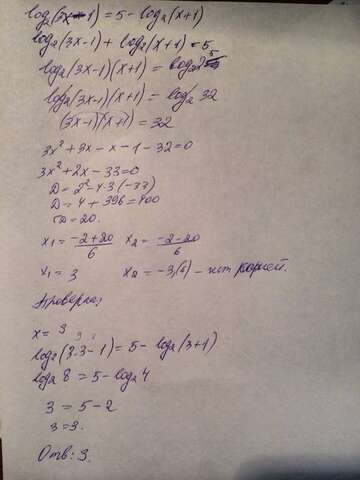 log₂(3x-1) = 5 - log₂(x+1)
log₂(3x-1) + log₂(x+1) = 5
log₂(3x-1)(x+1) = log₂2⁵
log₂(3x-1)(x+1) = log₂ 32
(3x-1)(x+1) = 32
3x²+3x-x-1-32=0
3x²+2x-33=0
D=2²-4·3·(-33)
D=4+396=400
√D=20.
x₁=(-2+20)/6 x₂=(-2-20)/6
x₁=3 x₂=-3,(6) - нет корней.
Проверка:
x=3
log₂(3·3-1)=5-log₂(3+1)
log₂8=5-log₂4
3=5-2
3=3.
Отв: 3.